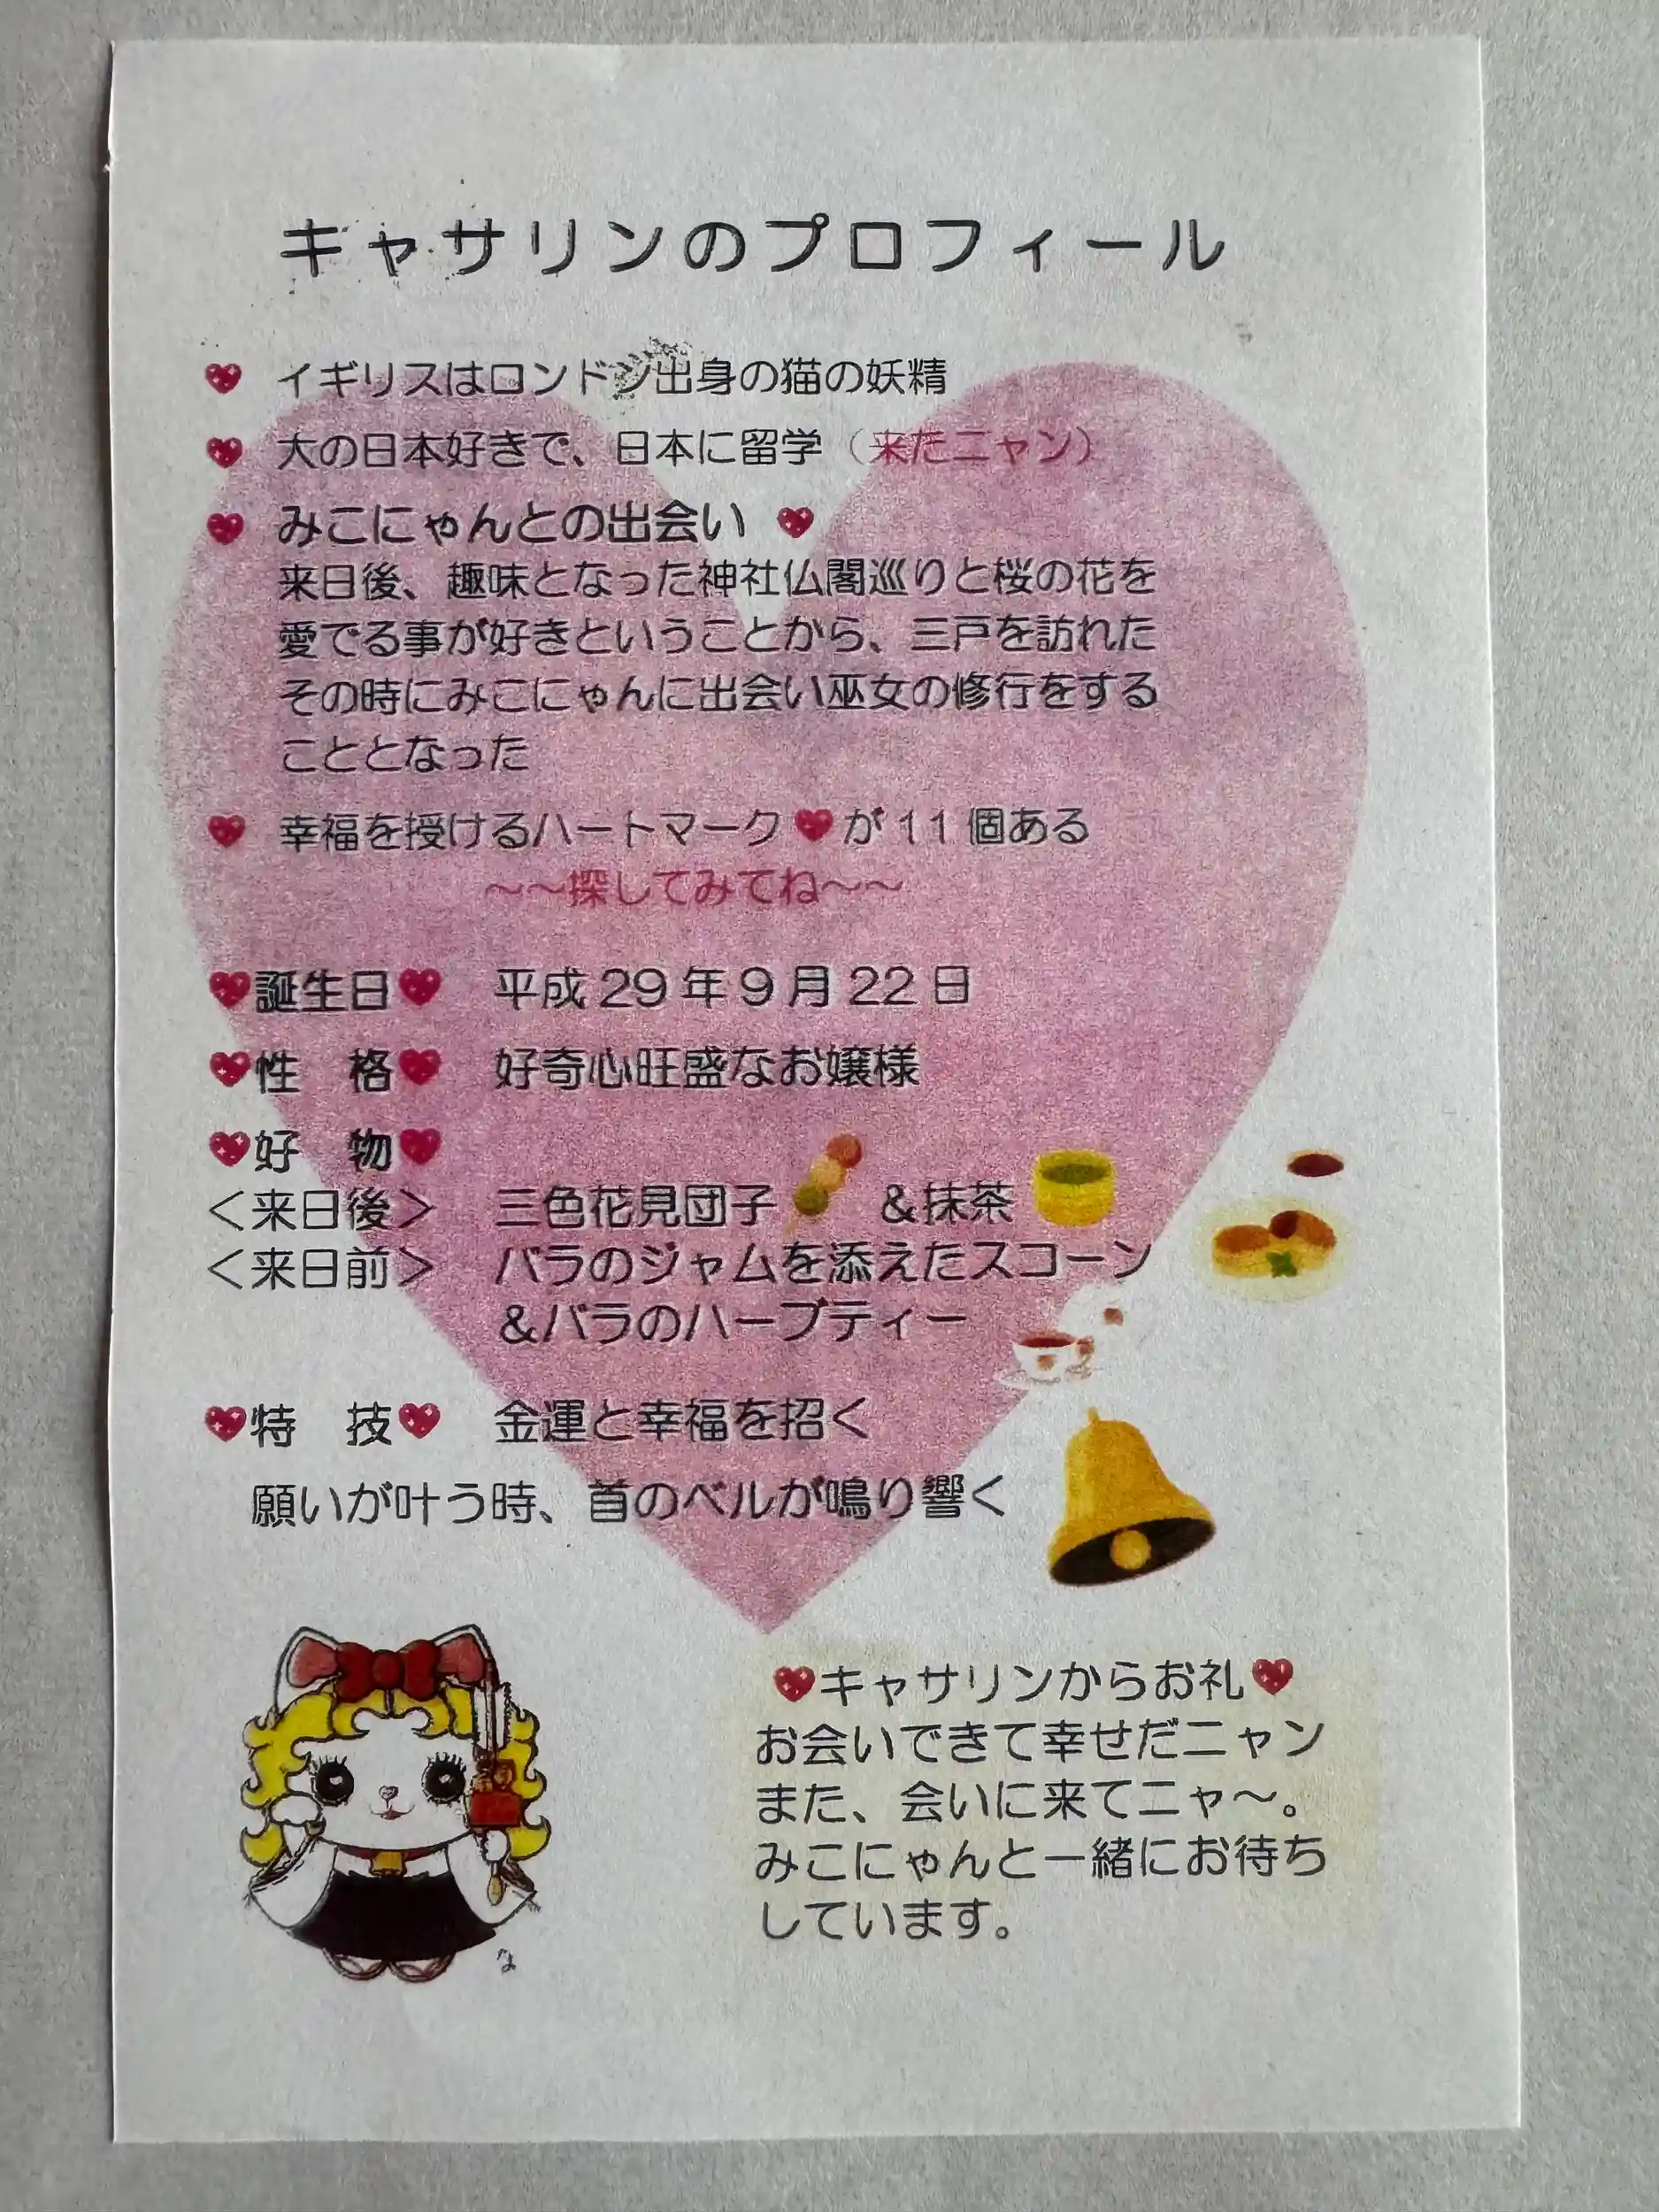 キャサリンのプロフィール
♥ イギリスはロンドン出身の猫の妖精
♥ 大の日本好きで、日本に留学（来たニャン）
♥ みこにゃんとの出会い ♥
来日後、趣味となった神社仏閣巡りと桜の花を
愛でる事が好きということから、三戸を訪れた
その時にみこにゃんに出会い巫女の修行をする
こととなった
♥ 幸福を授けるハートマーク♥が11個ある
～～探してみてね～～
♥誕生日♥ 平成29年9月22日
♥性　格♥ 好奇心旺盛なお嬢様
♥好　物♥
＜来日後＞ 三色花見団子 ＆抹茶
＜来日前＞ バラのジャムを添えたスコーン
＆バラのハーブティー
♥特　技♥ 金運と幸福を招く
願いが叶う時、首のベルが鳴り響く
♥キャサリンからお礼♥
お会いできて幸せだニャン
また、会いに来てニャ～。
みこにゃんと一緒にお待ち
しています。